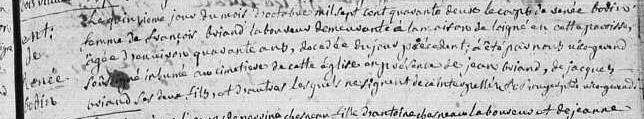 Le quinzieme jour du mois d'octobre mil sept cent quarante deux le corps de renée bodin
ent: femme de françois briand laboureur demeurante à la maison de loigné en cette paroisse,
de agée d'environ quarante ans, decedée du jour précedent; a été par nous
renée soussigné inhumé au cimetiere de cette église en présence de jean briand, de jacques
bodin briand ses deux fils, et d'autres lesquels ne signent de ce interpellés
fille d'antoine chesneau laboureur et de jeanne